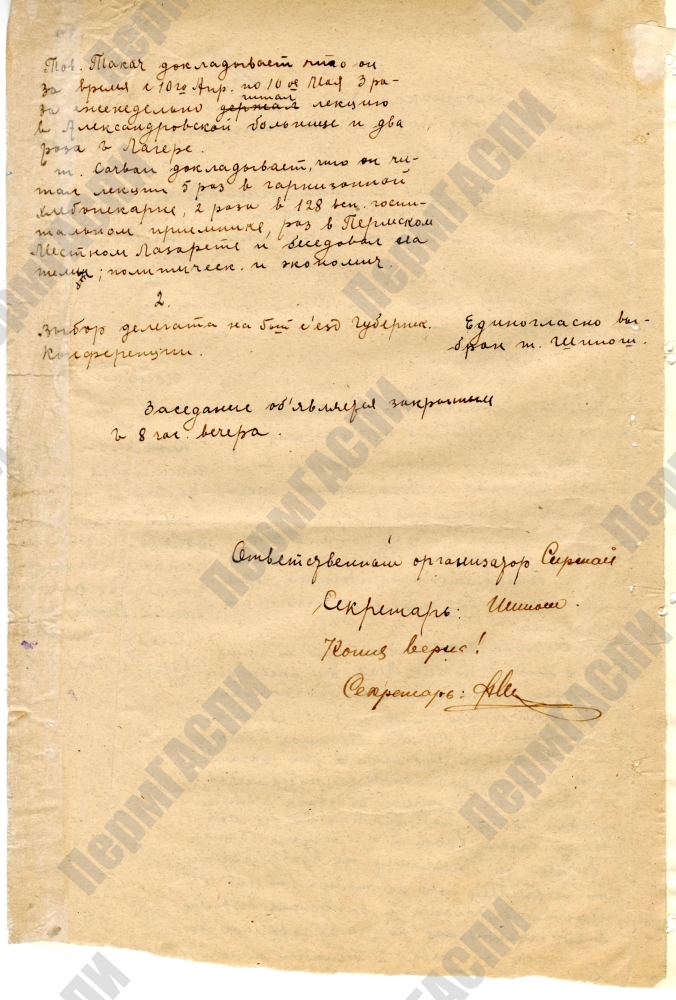 Тов. Такач докладывает что он
за время с 10го Апр. по 10ое Мая 3 ра-
за еженедельно держал читал лекцию
в Александровской больнице и два
раза в Лагере.
т. Сарваи докладывает, что он чи-
тал лекции 5 раз в гарнизонной
хлебопекарне, 2 раза в 128 воен. госпи-
тальном приемнике, раз в Пермском
Местном Лазарете и беседовал на
темы; политическ. и экономич.
2.
Выбор делегата на 6ой с'езд Губернск. Единогласно вы-
Конференции. бран т. Шимош.
Заседание об'является закрытым
в 8 час. вечера.
Ответственный организатор
Секретарь: Шимош.
Копия верна!
Секретарь:
ПермГАСПИ